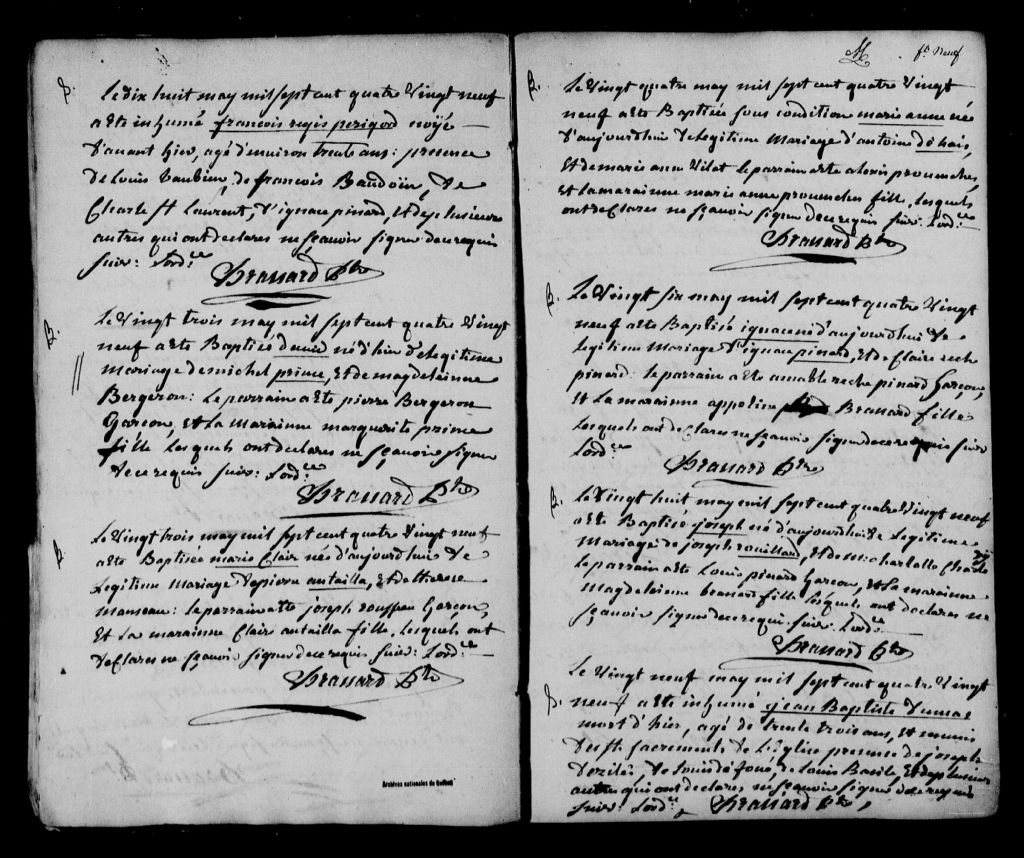 S.
Le dix huit may mil sept cent quatre Vingt neuf
a ete inhumé francois regis perigord noÿé
D'auant hier, agé d'environ trente ans: presence
de Louis Baubien, de francois Baudoüin, De
Charle St Laurent, D'ignace pinard, et de plusieurs
autres qui ont declares ne sçauoir signer de ce requis
suiv: Lord.ce
Brassard Ptre
B.
Le Vingt trois may mil sept cent quatre Vingt
neuf a ete Baptisé né d'hier De legitime
Mariage de michel prince, Et de magdeleinne
Bergeron: Le parrain a ete pierre Bergeron
Garcon, et La Marainne marguerite prince
fille Lesquels ont declares ne sçauoir signer
De ce requis suiv: Lord.ce
Brassard Ptre
B.
Le Vingt trois may mil sept cent quatre Vingt neuf
a ete Baptisée marie Clair née d'aujourdhui De
Legitime Mariage De pierre antailla, Et de therese
Manseau: le parrain a ete joseph rousseau Garcon,
Et La marainne Clair antailla fille, Lesquels ont
Declares ne sçauoir signer de ce requis suiv: Lord.ce
Brassard Ptre
Archives nationales du Québec
f.t Neuf
B.
Le Vingt quatre may mil sept cent quatre Vingt
neuf a ete Baptisée sous condition marie anne née
D'aujourdhui de legitime Mariage d'antoine
Et de marie anne le parrain a ete alexis prouencher,
Et La marainne marie anne prouencher fille, Lesquels
ont declares ne sçauoir signer de ce requis suiv: Lord.ce
Brassard Ptre
B.
Le Vingt six may mil sept cent quatre Vingt
neuf a ete Baptisé ignace né d'aujourdhui de
Legitime Mariage D'ignace pinard, Et de Claire reche
pinard: le parrain a ete amable reche pinard Garcon,
Et La marainne appoline Brassard fille
Lesquels ont declares ne sçauoir signer de ce requis suiv
Lord.ce
Brassard Ptre
B.
Le Vingt huit may mil sept cent quatre Vingt neuf
a ete Baptisé joseph né d'aujourdhui de Legitime
Mariage de joseph rouillard, et de Charle
Le parrain a ete Louis pinard Garcon, et La marainne
Magdeleinne fille Lesquels ont declares ne
sçauoir signer de ce requi suiv: Lord.ce
Brassard Ptre
S.
Le Vingt neuf may mil sept cent quatre Vingt
neuf a ete inhumé jean Baptiste Dumas
mort d'hier, agé de trente trois ans, et muni
Des St. sacrements de L'eglise presence de joseph
de Louis de Louis Et de plusieurs
autres qui ont declares ne sçauoir signer de ce requis
suiv: Lord.ce Brassard Ptre